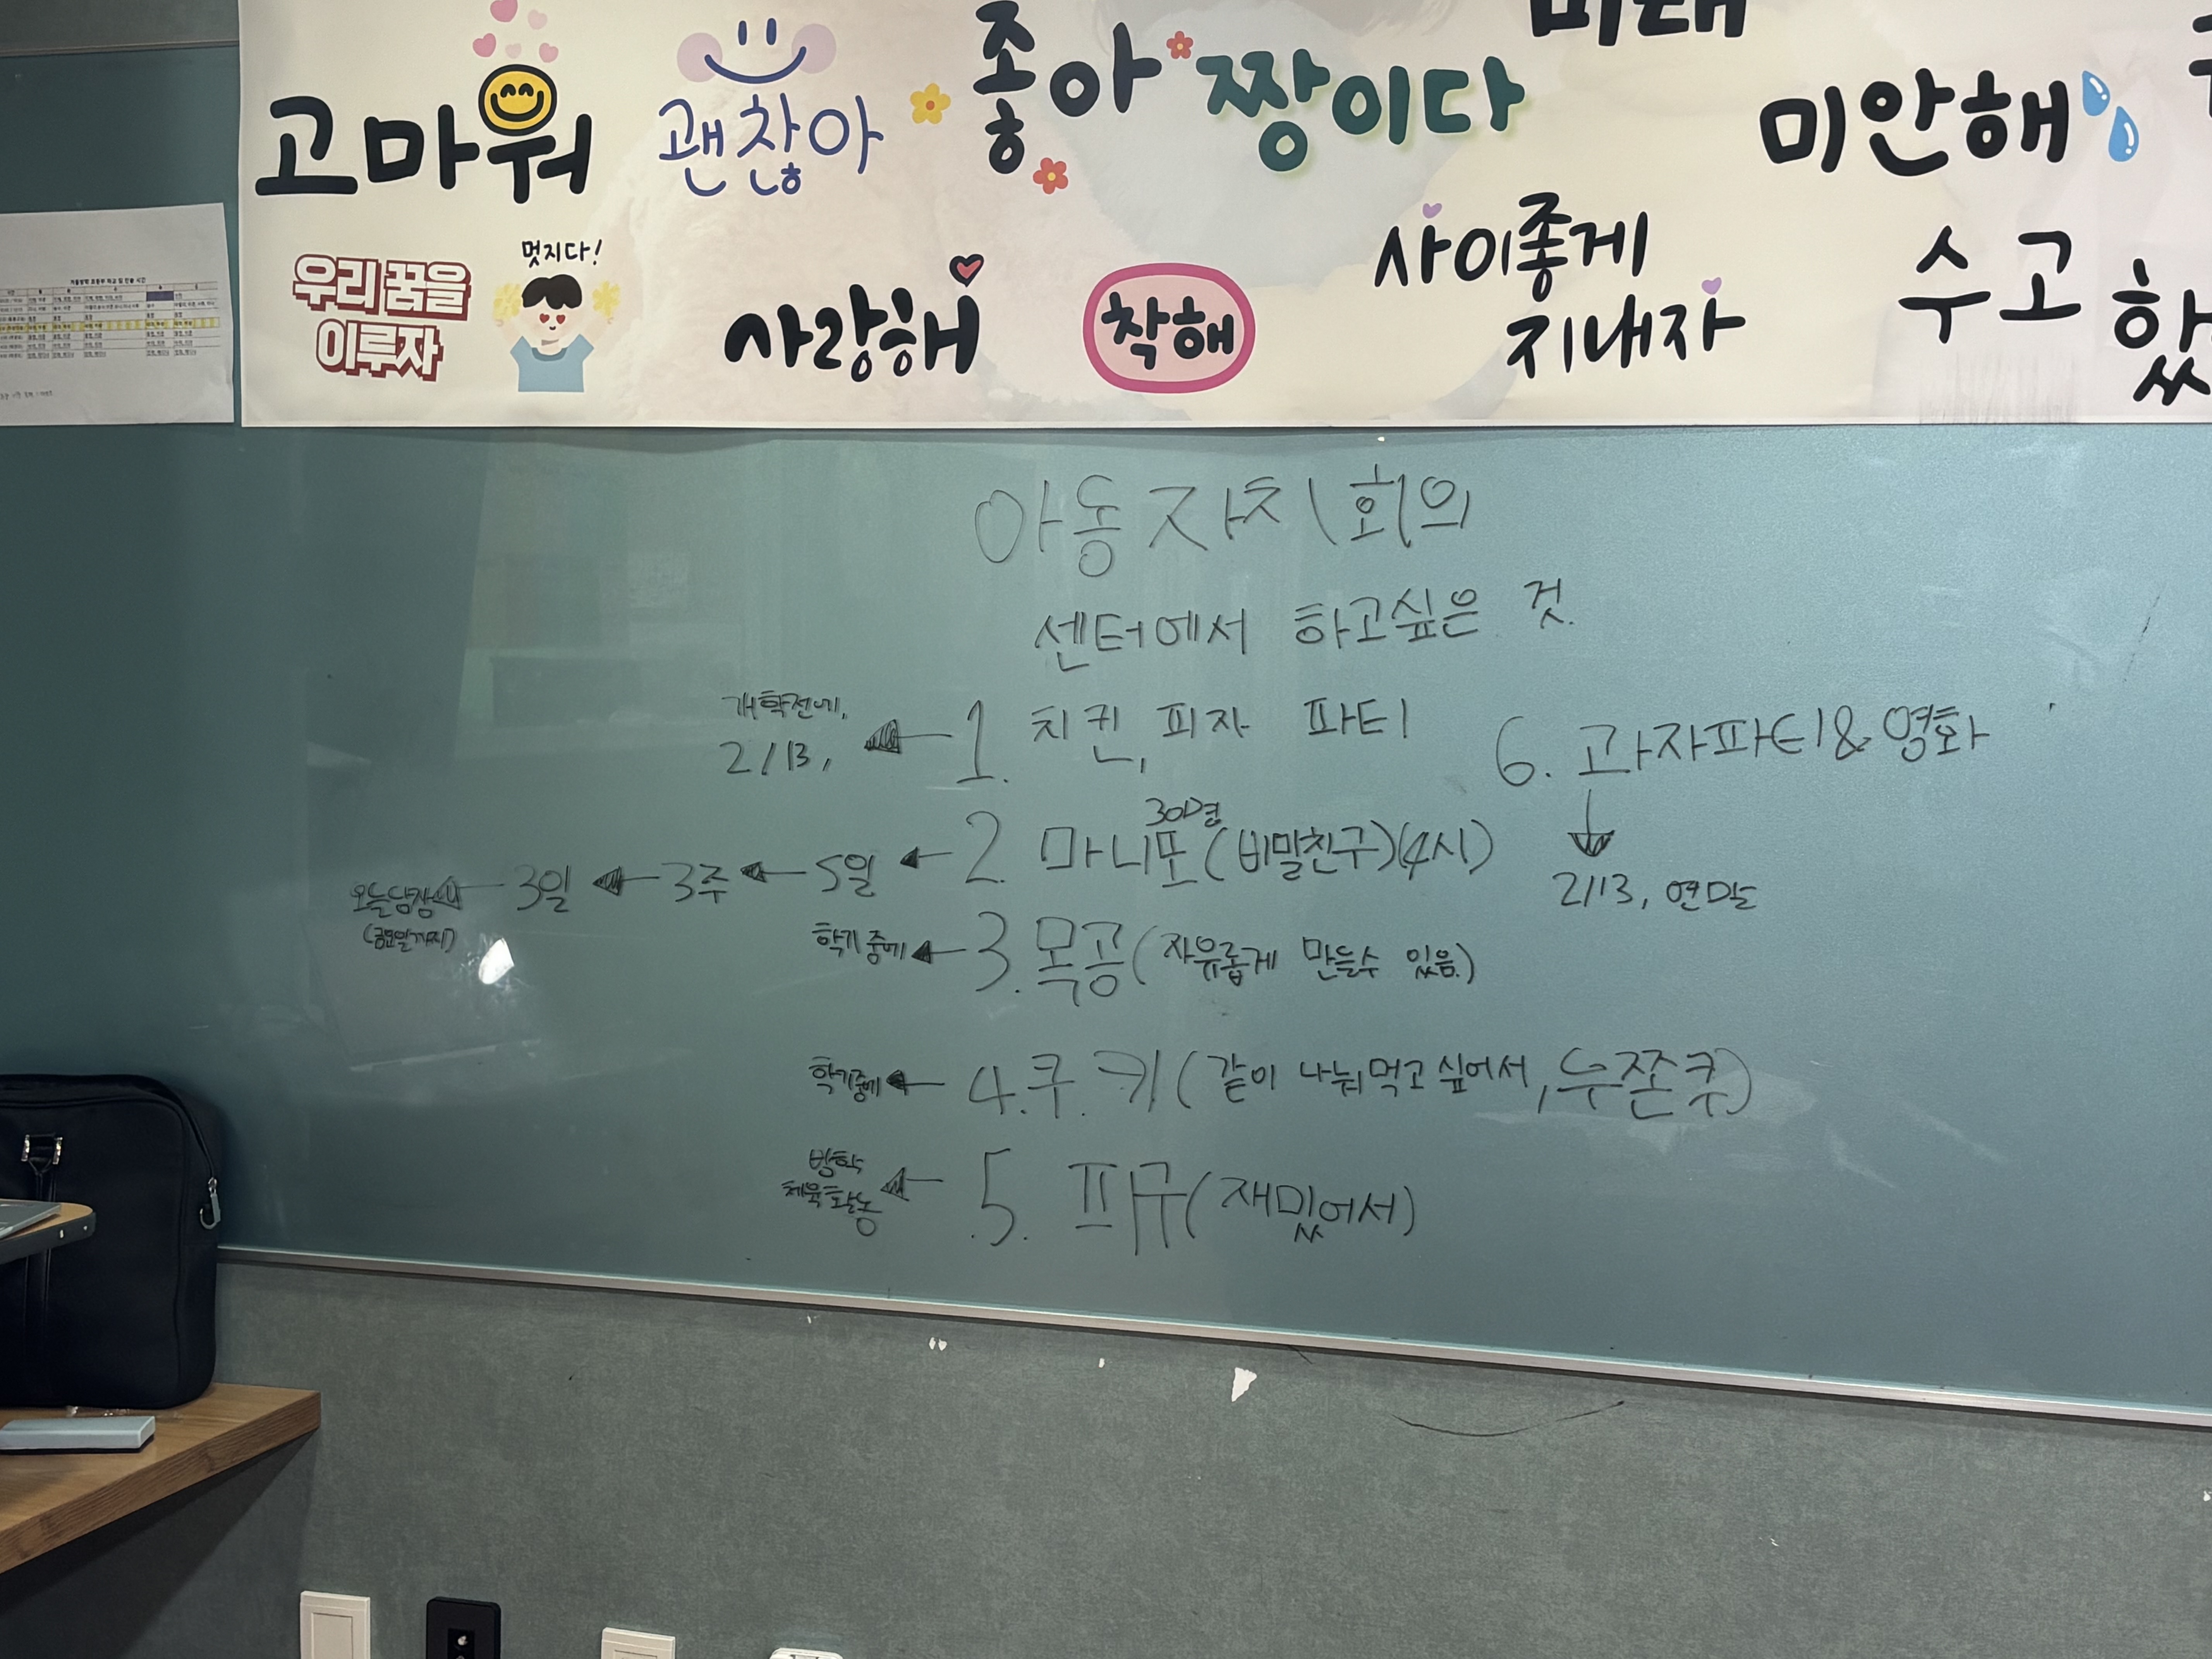 고마워
괜찮아
좋아
짱이다
미안해
멋지다!
우리 꿈을
이루자
사랑해
착해
사이좋게
지내자
수고
했
아동자치회의
센터에서 하고싶은 것.
개학전에,
2/13, ← 1. 치킨, 피자 파티
6. 과자파티&영화
↓
2/13, 연말
30명
오늘당장 ← 3일 ← 3주 ← 5일 ← 2. 마니또(비밀친구)(4시)
(금요일까지)
학기중에 ← 3. 목공(자유롭게 만들수 있음.)
학기중에 ← 4. 쿠.키(같이 나눠먹고 싶어서, 두쫀쿠)
방학
체육활동 ← 5. 피구(재밌어서)